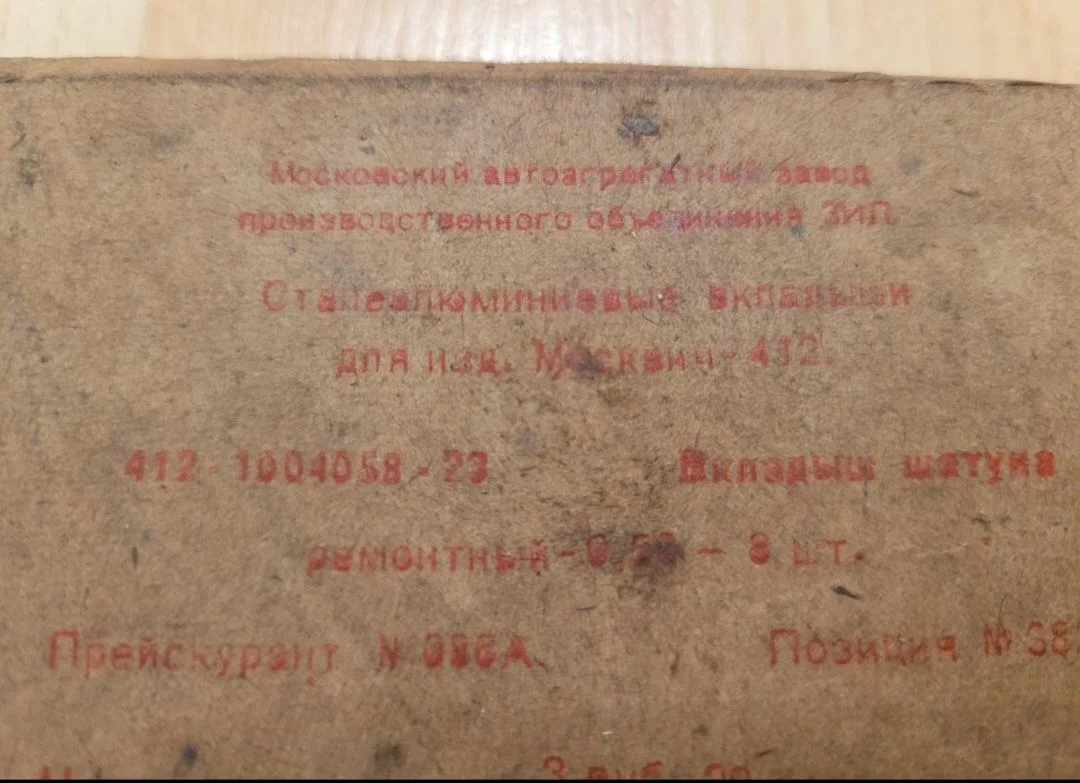 Московский автоагрегатный завод
производственного объединения ЗИЛ
Сталеалюминиевые вкладыши
для изд. Москвич-412.
412-1004058-23 Вкладыш шатуна
ремонтный- - 8 шт.
Прейскурант № Позиция №
3 руб.